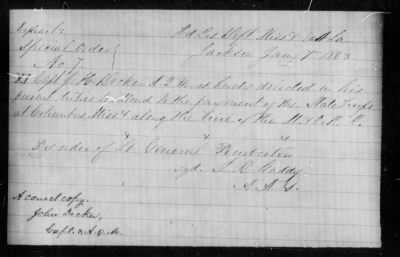 Extract
Hd Qrs Dept Miss & East La
Special Orders
Jackson Jany 7" 1863
No 7.
XI Capt Jn Decker A. Q. M. is hereby directed in his
present duties to attend to the payment of the State Troops
at Columbus, Miss & along the line of the M. & O. R. R.
By order of Lt General Pemberton
Sgd. J. R. Waddy
A. A. G.
A correct copy.
John Decker,
Capt. & A. Q. M.